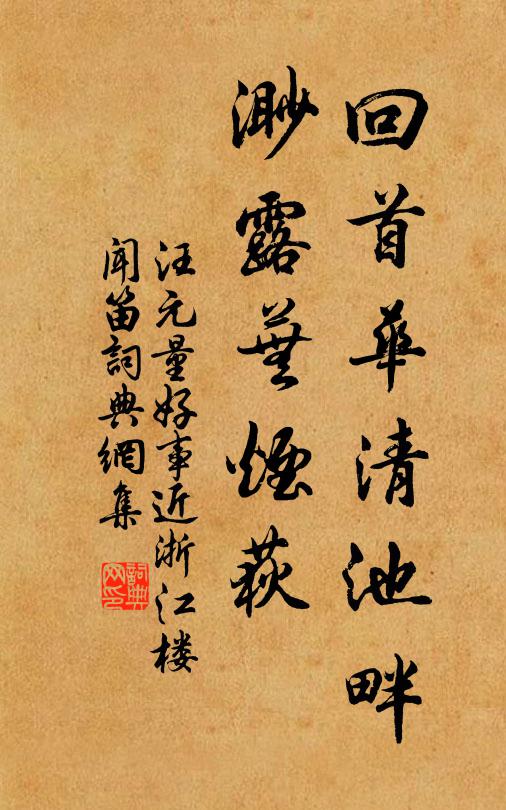 回首華清池畔
渺露蕪煙荻
汪元量好事近浙江楼
聞笛詞典網集
詞典
网印